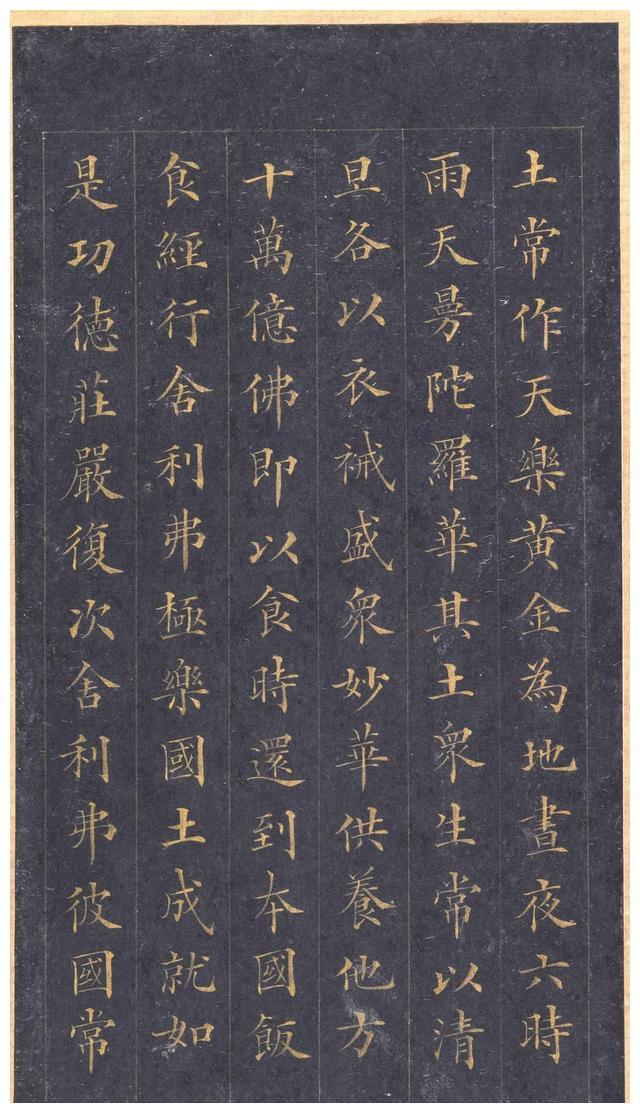 土常作天樂黄金為地晝夜六時
雨天曼陀羅華其土衆生常以清
旦各以衣祴盛衆妙華供養他方
十萬億佛即以食時還到本國飯
食經行舍利弗極樂國土成就如
是功德莊嚴復次舍利弗彼國常